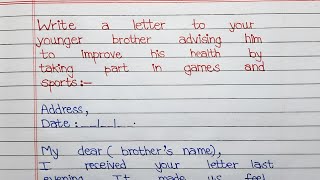 Write a letter to your
younger brother advising him
to improve his health by
taking part in games and
sports:-
Address,
Date:__/__/__.
My dear ( brother's name),
I received your letter last
evening. It made us feel